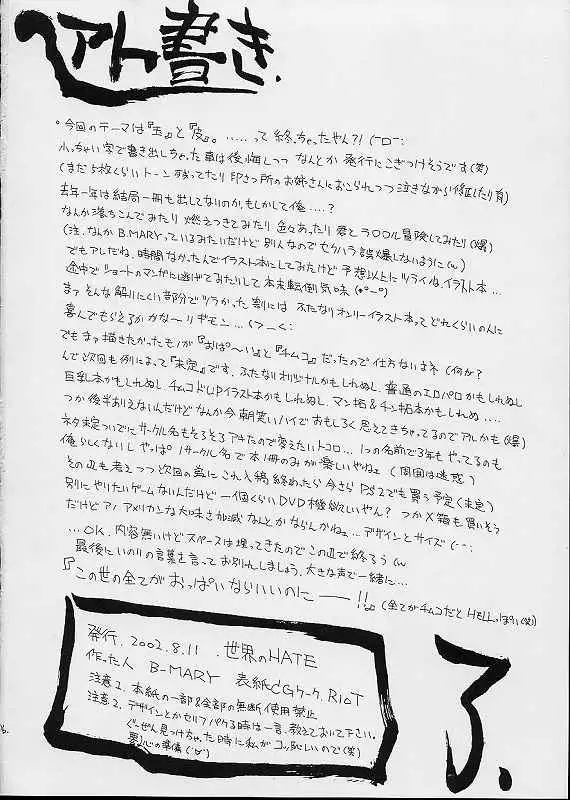 アト書き.
今回のテーマは『玉』と『皮』。.....って終っちゃったやん?!
小っちゃい字で書き出しちゃった事は後悔しつつ なんとか発行にこぎつけそうです(笑)
(まだ5枚くらいトーン残ってたり印さつ所のお姉さんにおこられつつ泣きながら修正したり有)
去年一年は結局一冊も出してないのか,もしかして俺....?
なんか落ちこんでみたり 燃えつきてみたり 色々あったり 愛とラOOル冒険してみたり(爆)
(注.なんか B.MARYっているみたいだけど 別人なのでセクハラ誤爆しないように(w)
でもアレだね、時間なかったんでイラスト本にしてみたけど予想以上にツライね,イラスト本...
途中でショートのマンガに逃げてみたりして本末転倒気味
まァそんな解りにくい部分でツラかった割には ふたなりオンリーイラスト本ってどれくらいの人に
喜んでもらえるかかなーりギモン...
でもまァ描きたかったモノが『おぱ〜い』と『チムコ』だったので仕方ないよネ(何が?
んで次回も例によって『未定』です.ふたなりオリジナルかもしれぬし.普通のエロパロかもしれぬし
巨乳本かもしれぬし チムコドUPイラスト本かもしれぬし.マン拓&チン拓本かもしれぬ....
つか後半ありえないんだけどなんか今朝笑いハイでおもしろく思えてきちゃってるのでアルかも(爆)
ネタ未定ついでにサークル名もそろそろアキたので変えたいトコロ...1つの名前で3年もやってるのも
俺らしくないし やっぱ1サークル名で本1冊のみが楽しいやね(周囲は迷惑)
その辺も考えつつ次回の為に これ入稿終わったら今さらPS2でも買う予定(未定)
別にやりたいゲームないんだけど一個くらいDVD機欲しいやん? つかX箱も買いそう
だけどアノ アメリカンな大味さ加減なんとかならんかねェ...デザインとサイズ
...OK.内容無いけどスペースは埋ってきたのでこの辺で終ろう(w
最後にいのりの言葉を言ってお別れしましょう.大きな声で一緒に...
『この世の全てがおっぱいならいいのにーー!!』(全てがチムコだとHELLっぽい(笑)
発行. 2002.8.11 .世界のHATE
作った人 B-MARY 表紙CGワーク.RIOT
注意1.本紙の一部&全部の無断使用禁止
注意2.デザインとかセルフパクる時は一言.教えておいて下さい。
ぐーぜん見つけちゃった時に私がコッ恥しいので(笑)
了.